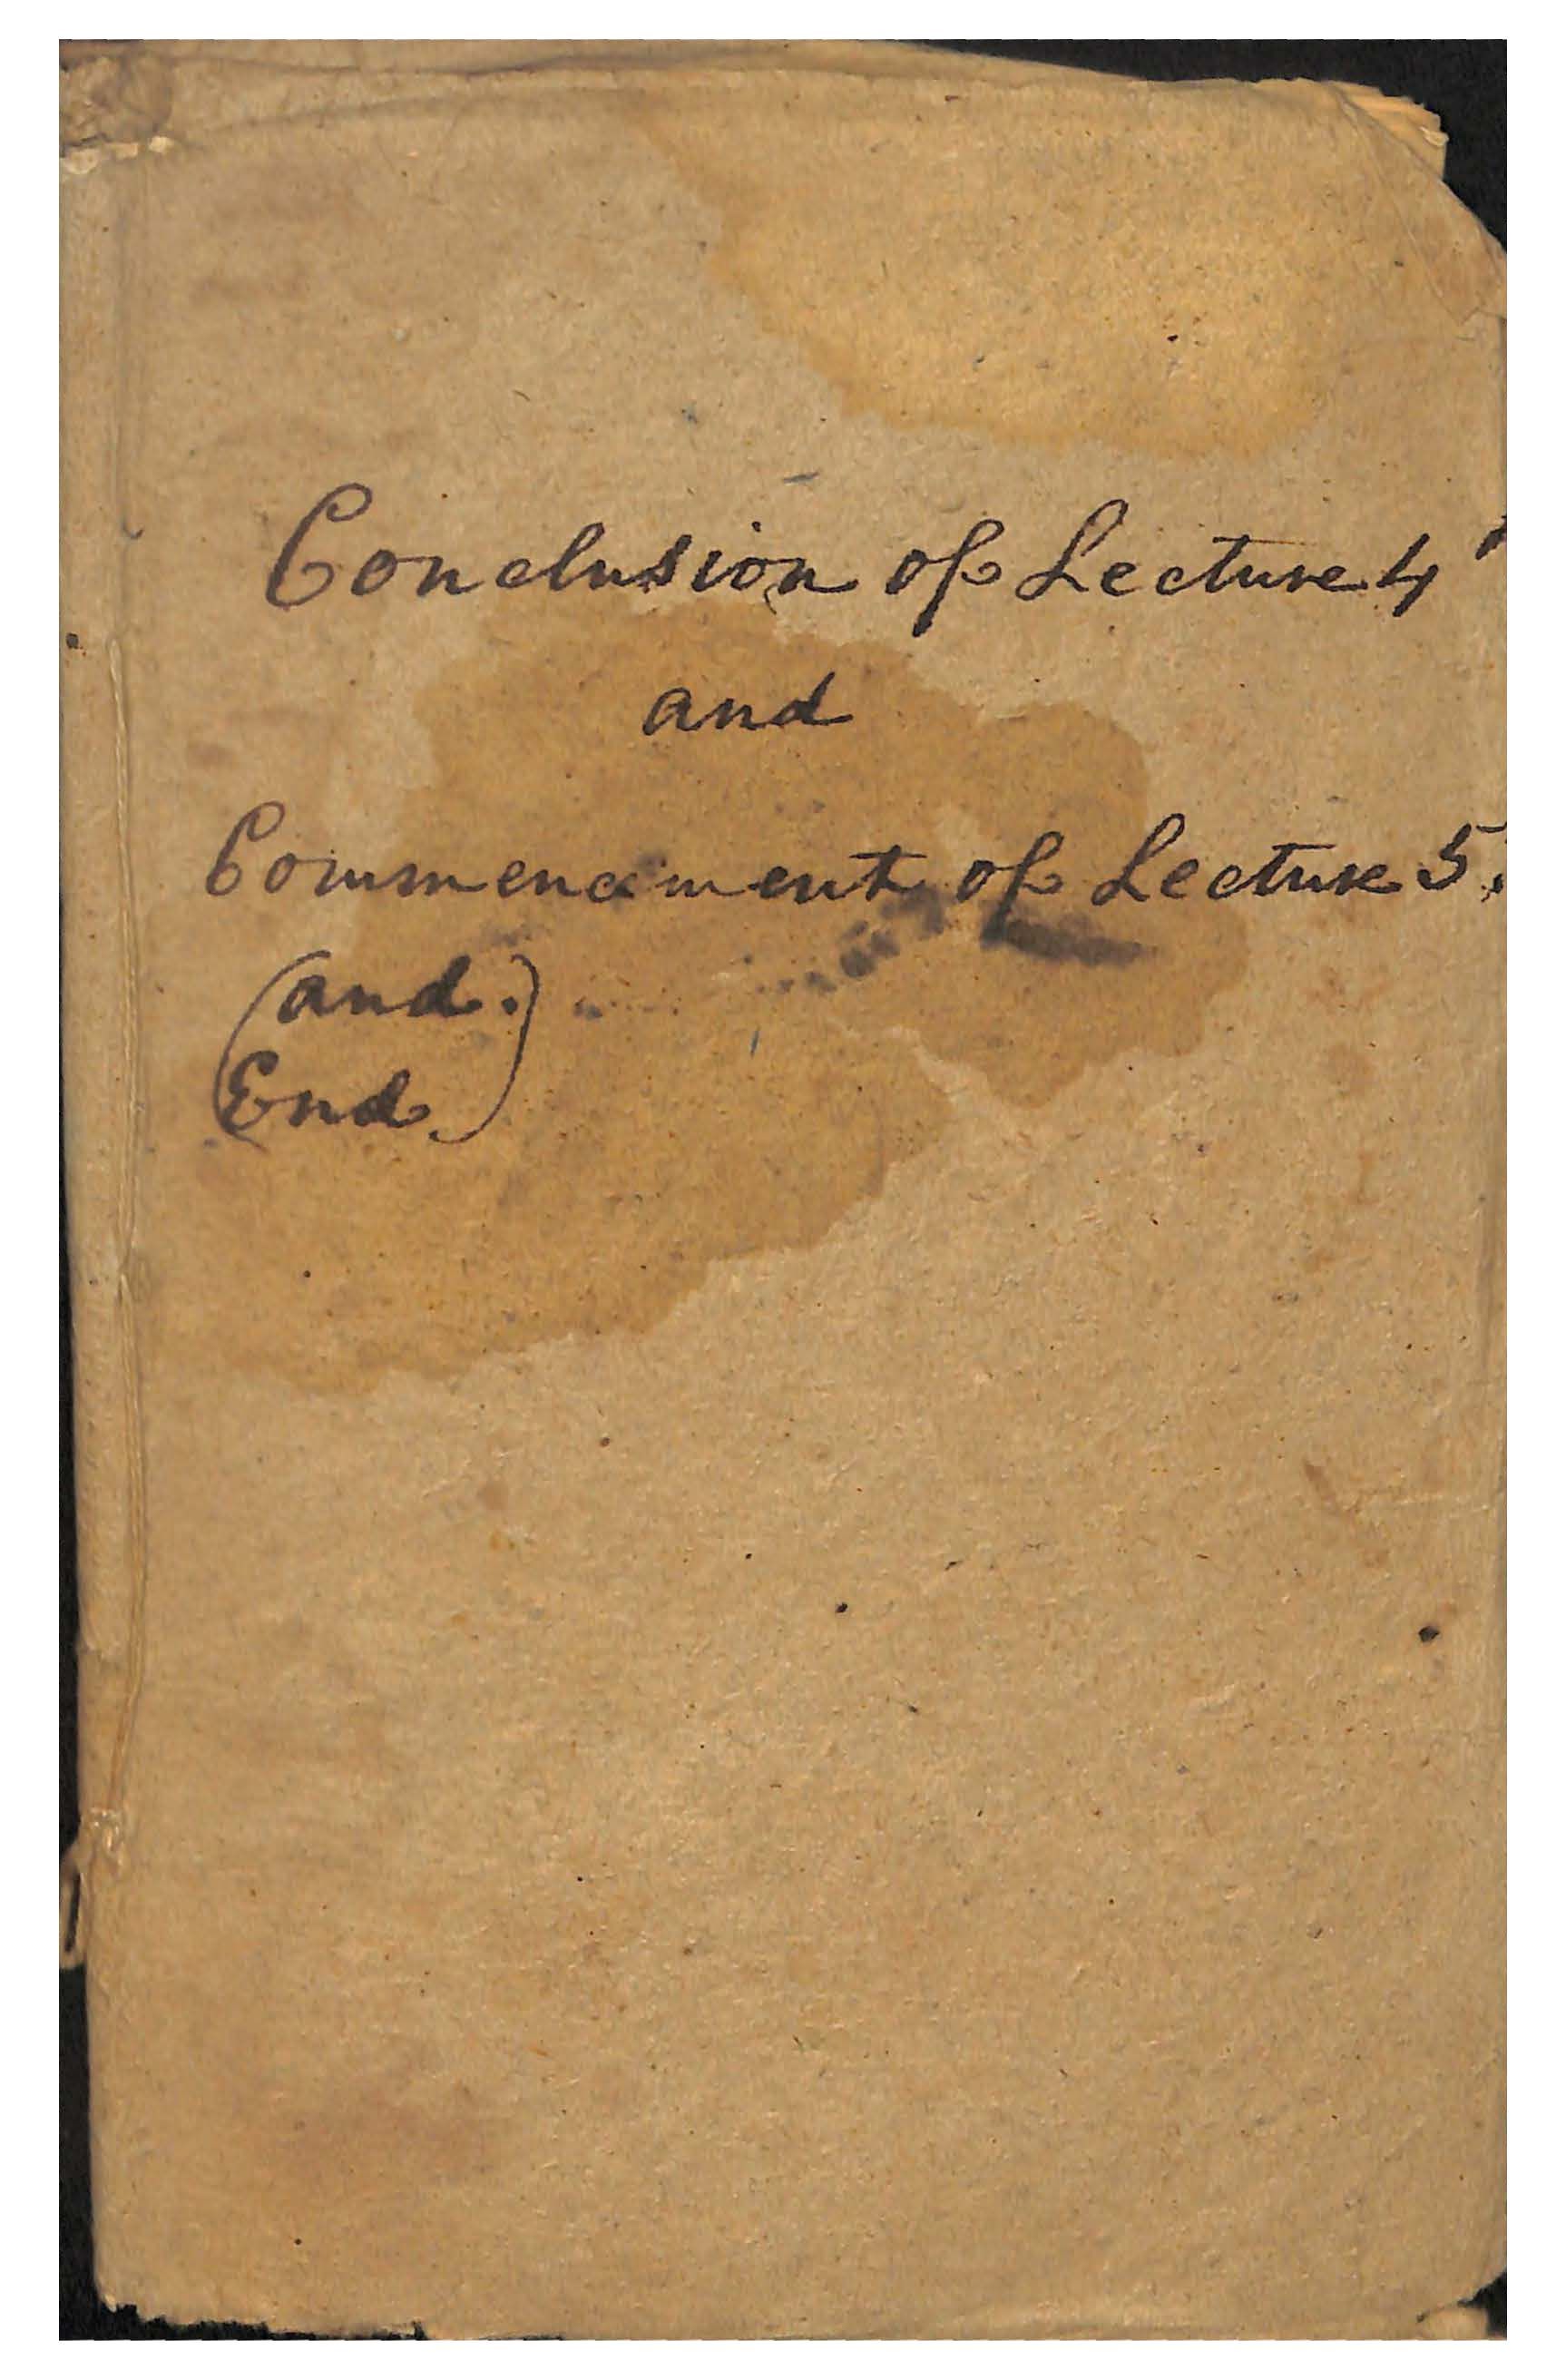 Conclusion of Lecture 4
and
Commencement of Lecture 5.
(and.)
End.